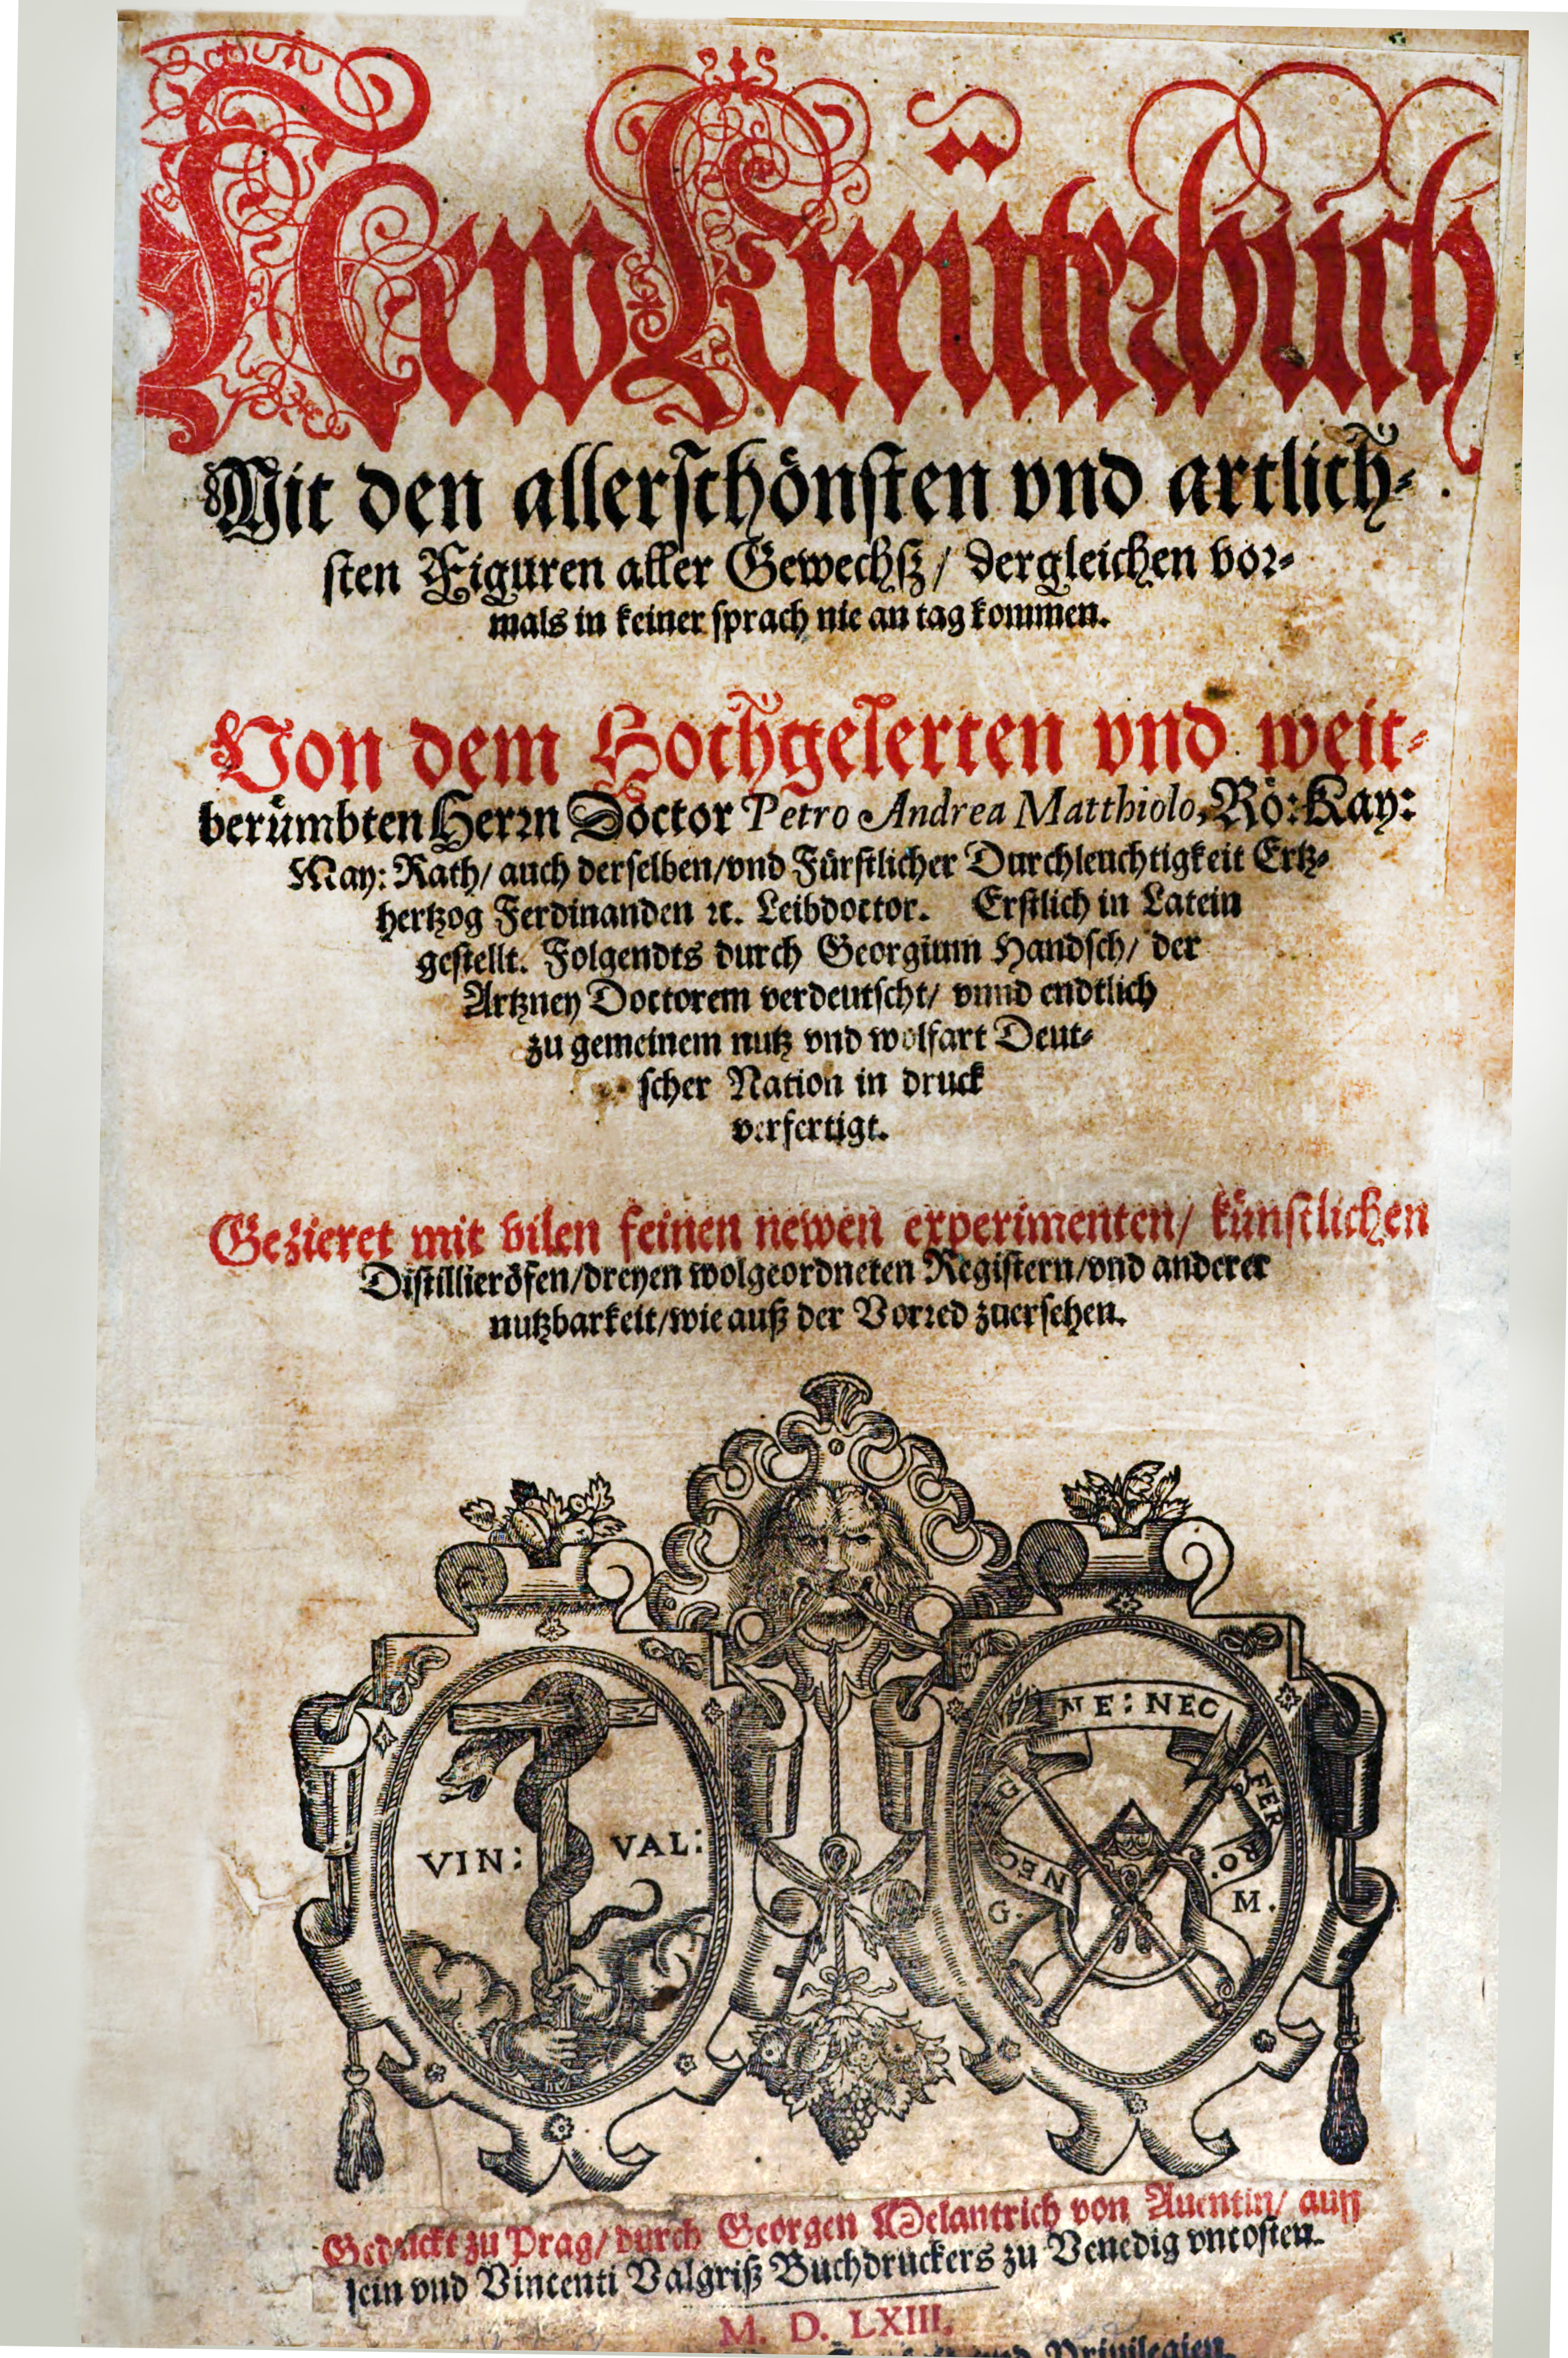 New Kreüterbuch
Mit den allerschönsten vnd artlich-
sten Figuren aller Gewechß / dergleichen vor-
mals in keiner sprach nie an tag kommen.
Von dem Hochgelerten vnd weit-
berümbten Herrn Doctor Petro Andrea Matthiolo, Rö: Kay:
May: Rath / auch derselben / vnd Fürstlicher Durchleuchtigkeit Ertz-
hertzog Ferdinanden ꝛc. Leibdoctor. Erstlich in Latein
gestellt. Folgendts durch Georgium Handsch / der
Artzney Doctorem verdeutscht / vnnd endtlich
zu gemeinem nutz vnd wolfart Deut-
scher Nation in druck
verfertigt.
Gezieret mit vilen feinen newen experimenten / künstlichen
Distillieröfen / dreyen wolgeordneten Registern / vnd anderer
nutzbarkeit / wie auß der Vorred zuersehen.
VIN: VAL:
NE: NEC
FER RO.
NEC
G. M.
Gedruckt zu Prag / durch Georgen Melantrich von Auentin / auff
sein vnd Vincenti Valgriß Buchdruckers zu Venedig vncosten.
M. D. LXIII.
Privilegien.